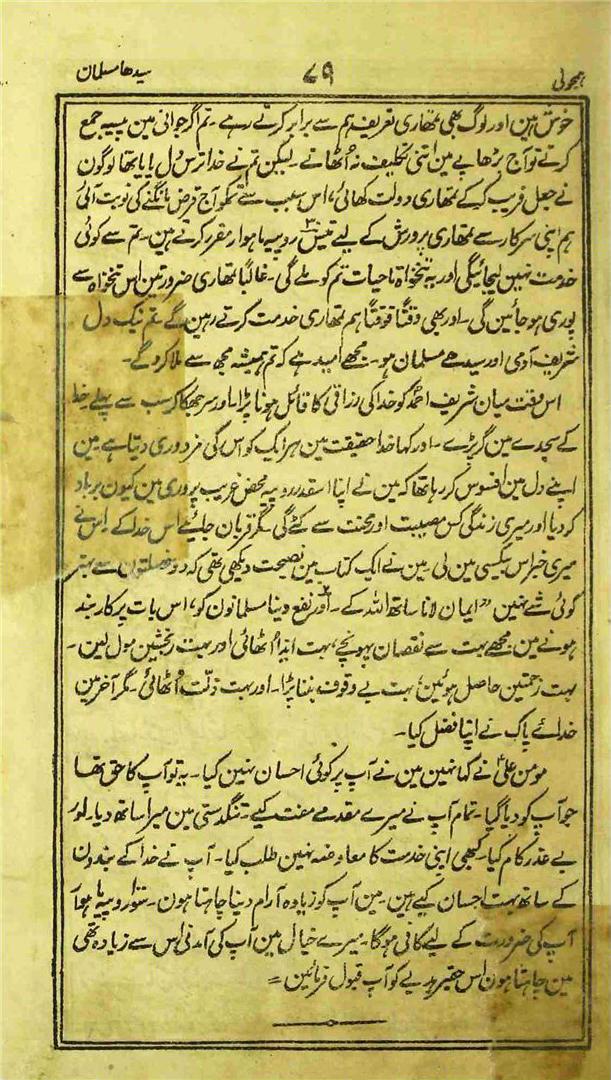 سیدھا مسلمان
۷۹
ہمجولی
خوش ہین اور لوگ بھی تمھاری تعریف ہم سے برابر کرتے رہے۔ تم اگر جوانی مین پیسہ جمع
کرتے تو آج بڑھاپے مین اتنی تکلیف نہ اُٹھاتے۔ لیکن تم نے خدا ترس دل پایا تھا لوگون
نے جعل فریب کر کے تمھاری دولت کھائی، اس سبب سے تمکو آج قرض مانگنے کی نوبت آئی
ہم اپنی سرکار سے تمھاری پرورش کے لیے تیس ۳۰ روپیہ ماہوار مقرر کرتے ہین۔ تم سے کوئی
خدمت نہین لیجائیگی اور یہ تنخواہ تا حیات تم کو ملے گی۔ غالباً تمھاری ضرورتین اس تنخواہ سے
پوری ہو جائین گی۔ اور بھی وقتاً فوقتاً ہم تمھاری خدمت کرتے رہین گے تم نیک دل
شریف آدمی اور سیدھے مسلمان ہو۔ مجھے اُمید ہے کہ تم ہمیشہ مجھ سے ملا کروگے۔
اس وقت میان شریف احمد کو خدا کی رزاقی کا قائل ہونا پڑا۔ اور سر جھکا کر سب سے پہلے خدا
کے سجدے مین گر پڑے۔ اور کہا خدا حقیقت مین ہر ایک کو اس کی مزدوری دیتا ہے مین
اپنے دل مین افسوس کر رہا تھا کہ مین نے اپنا اسقدر روپیہ محض غریب پروری مین کیون برباد
کر دیا اور میری زندگی کس مصیبت اور محنت سے کٹے گی مگر قربان جائیے اس خدا کے اس نے
میری خبر اس بیکسی مین لی۔ مین نے ایک کتاب مین نصیحت دیکھی تھی کہ دو خصلتون سے بہتر
کوئی شے نہین "ایمان لانا ساتھ اللہ کے۔ اور نفع دینا مسلمانون کو، اس بات پر کاربند
ہونے مین مجھے بہت سے نقصان پہونچے، بہت ایذا اُٹھائی اور بہت رنجشین مول لین۔
بہت زحمتین حاصل ہوئین، بہت بے وقوف بننا پڑا۔ اور بہت ذلت اُٹھائی۔ مگر آخر مین
خدائے پاک نے اپنا فضل کیا۔
مومن علی نے کہا نہین مین نے آپ پر کوئی احسان نہین کیا۔ یہ تو آپ کا حق تھا
جو آپ کو دیا گیا۔ تمام آپ نے میرے مقدمے مفت کیے۔ تنگدستی مین میرا ساتھ دیا۔ اور
بے عذر کام کیا۔ کبھی اپنی خدمت کا معاوضہ نہین طلب کیا۔ آپ نے خدا کے بندون
کے ساتھ بہت احسان کیے ہین۔ مین آپ کو زیادہ آرام دینا چاہتا ہون۔ سَو روپیہ ماہوار
آپ کی ضرورت کے لیے کافی ہوگا۔ میرے خیال مین آپ کی آمدنی اس سے زیادہ تھی
مین چاہتا ہون اس حقیر ہدیے کو آپ قبول فرمائین =